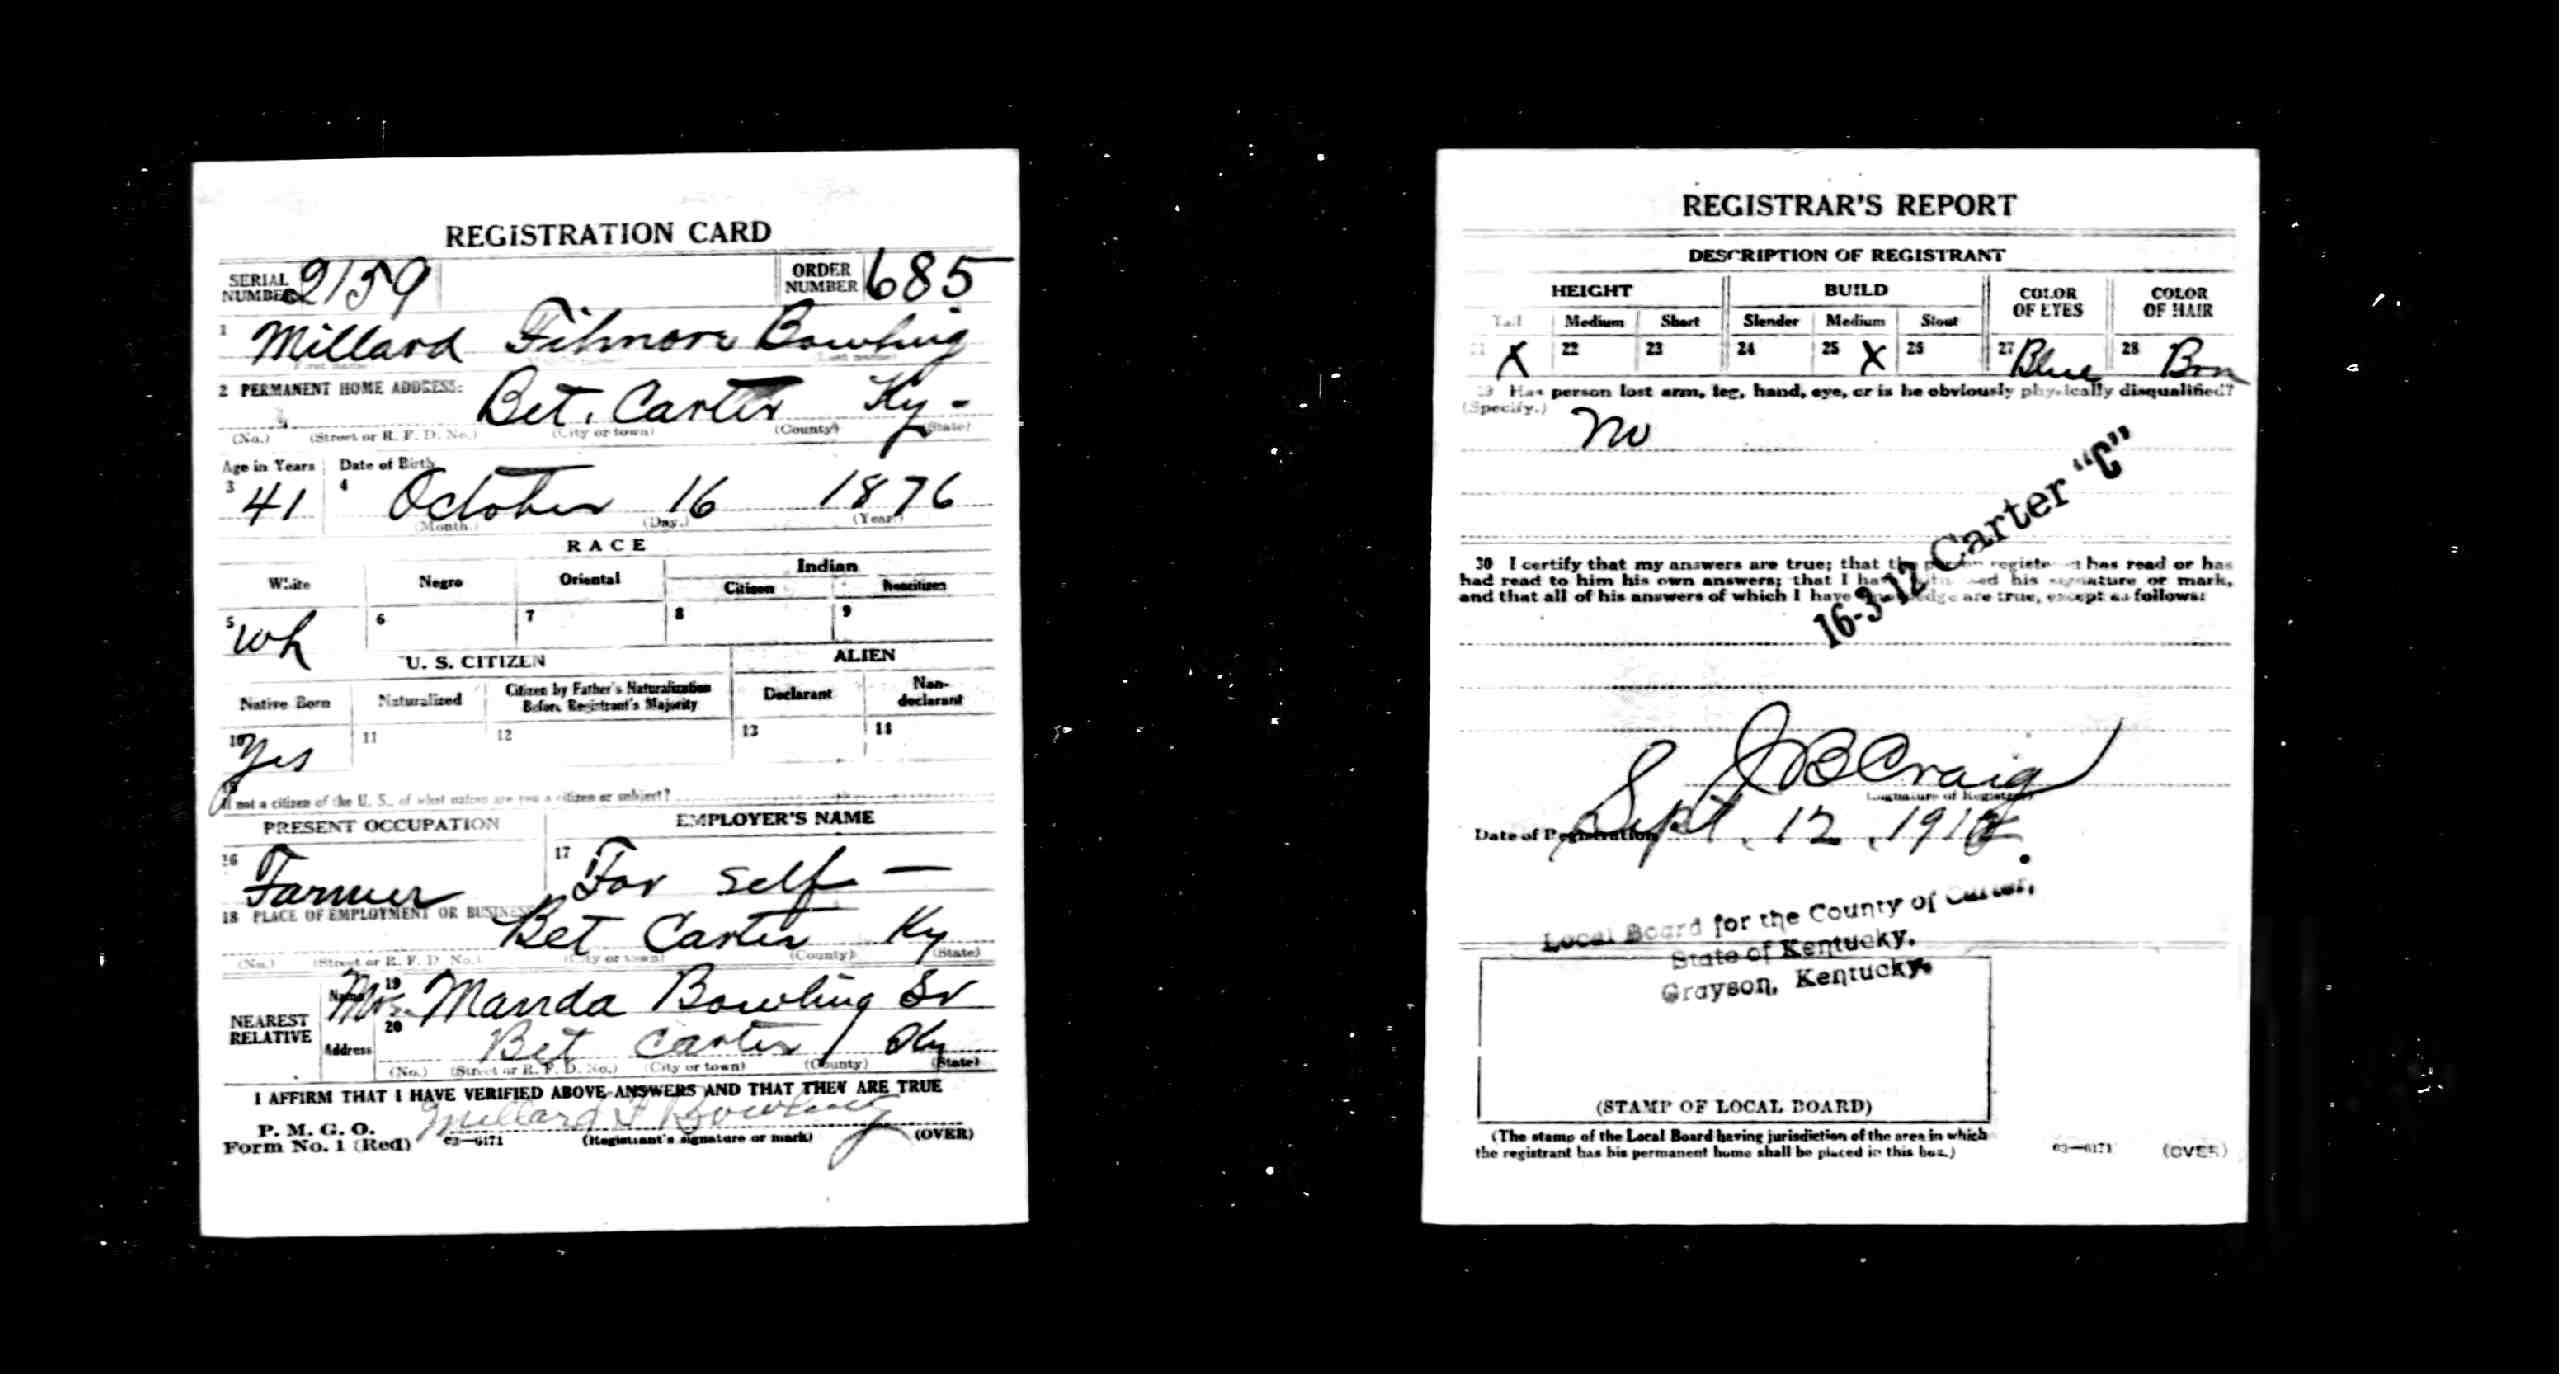 REGISTRATION CARD
SERIAL NUMBER 2159 ORDER NUMBER 685
1 Millard Filmore Bowling
(First name) (Last name)
2 PERMANENT HOME ADDRESS: Bet. Carter Ky-
(No.) (Street or R. F. D. No.) (City or town) (County) (State)
Age in Years Date of Birth
3 41 4 October 16 1876
(Month.) (Day.) (Year.)
RACE
White Negro Oriental Indian
Citizen Noncitizen
5 wh 6 7 8 9
U. S. CITIZEN ALIEN
Native Born Naturalized Citizen by Father's Naturalization Before Registrant's Majority Declarant Non-declarant
10 Yes 11 12 13 14
15 If not a citizen of the U. S., of what nation are you a citizen or subject?
PRESENT OCCUPATION EMPLOYER'S NAME
16 Farmer 17 For self —
18 PLACE OF EMPLOYMENT OR BUSINESS Bet Carter Ky
(No.) (Street or R. F. D. No.) (City or town) (County) (State)
NEAREST RELATIVE Name 19 Mrs. Manda Bowling Sr
Address 20 Bet Carter / Ky
(No.) (Street or R. F. D. No.) (City or town) (County) (State)
I AFFIRM THAT I HAVE VERIFIED ABOVE ANSWERS AND THAT THEY ARE TRUE
Millard F Bowling
P. M. G. O.
Form No. 1 (Red) 03—6171 (Registrant's signature or mark) (OVER)
REGISTRAR'S REPORT
DESCRIPTION OF REGISTRANT
HEIGHT BUILD COLOR OF EYES COLOR OF HAIR
Tall Medium Short Slender Medium Stout
21 X 22 23 24 25 X 26 27 Blue 28 Brn
29 Has person lost arm, leg, hand, eye, or is he obviously physically disqualified?
(Specify.) No
16-3-12 Carter "C"
30 I certify that my answers are true; that the person registered has read or has
had read to him his own answers; that I have witnessed his signature or mark,
and that all of his answers of which I have knowledge are true, except as follows:
J B Craig
(Signature of Registrar)
Date of Registration Sept. 12, 1918
Local Board for the County of Carter,
State of Kentucky.
Grayson, Kentucky.
(STAMP OF LOCAL BOARD)
(The stamp of the Local Board having jurisdiction of the area in which
the registrant has his permanent home shall be placed in this box.)
03—6171 (OVER)